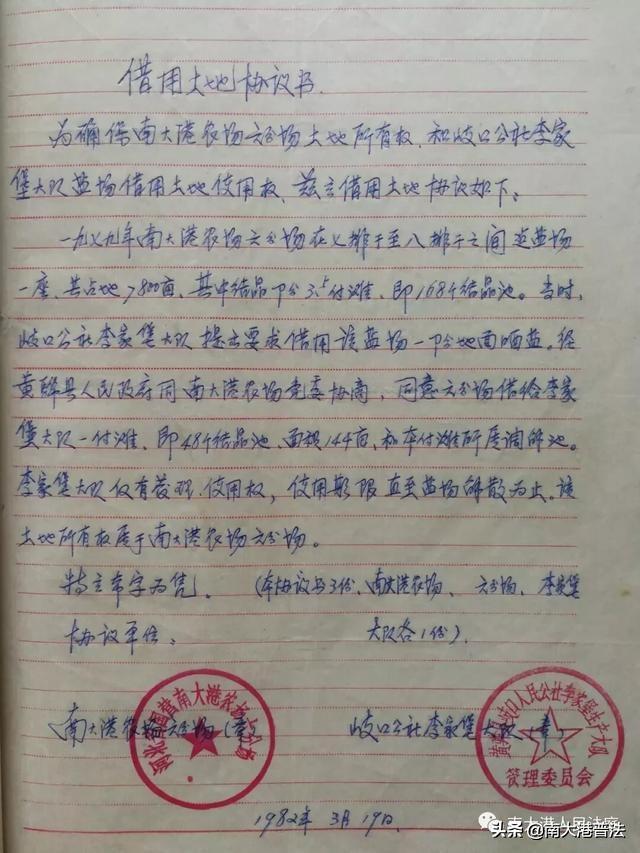 借用土地协议书
为确保南大港农场六分场土地所有权,和岐口公社李家
堡大队盐场借用土地使用权,兹立借用土地协议如下:
一九七九年南大港农场六分场在七排干至八排干之间建盐场
一座,共占地7800亩,其中结晶部分3.5付滩,即168个结晶池。当时,
岐口公社李家堡大队提出要求借用该盐场一部分地面晒盐。经
黄骅县人民政府同南大港农场党委协商,同意六分场借给李家
堡大队一付滩,即48个结晶池,面积144亩,和本付滩所属调节池。
李家堡大队仅有管理、使用权,使用期限直至盐场解散为止。该
土地所有权属于南大港农场六分场。
特立本字为凭。(本协议书3份,南大港农场、六分场、李家堡
协议单位: 大队各1份)。
南大港农场六分场(章) 岐口公社李家堡大队(章)
国营南大港农场六分场
岐口人民公社李家堡生产大队
管理委员会
1982年3月19日
南大港人民法庭
头条@南大港普法